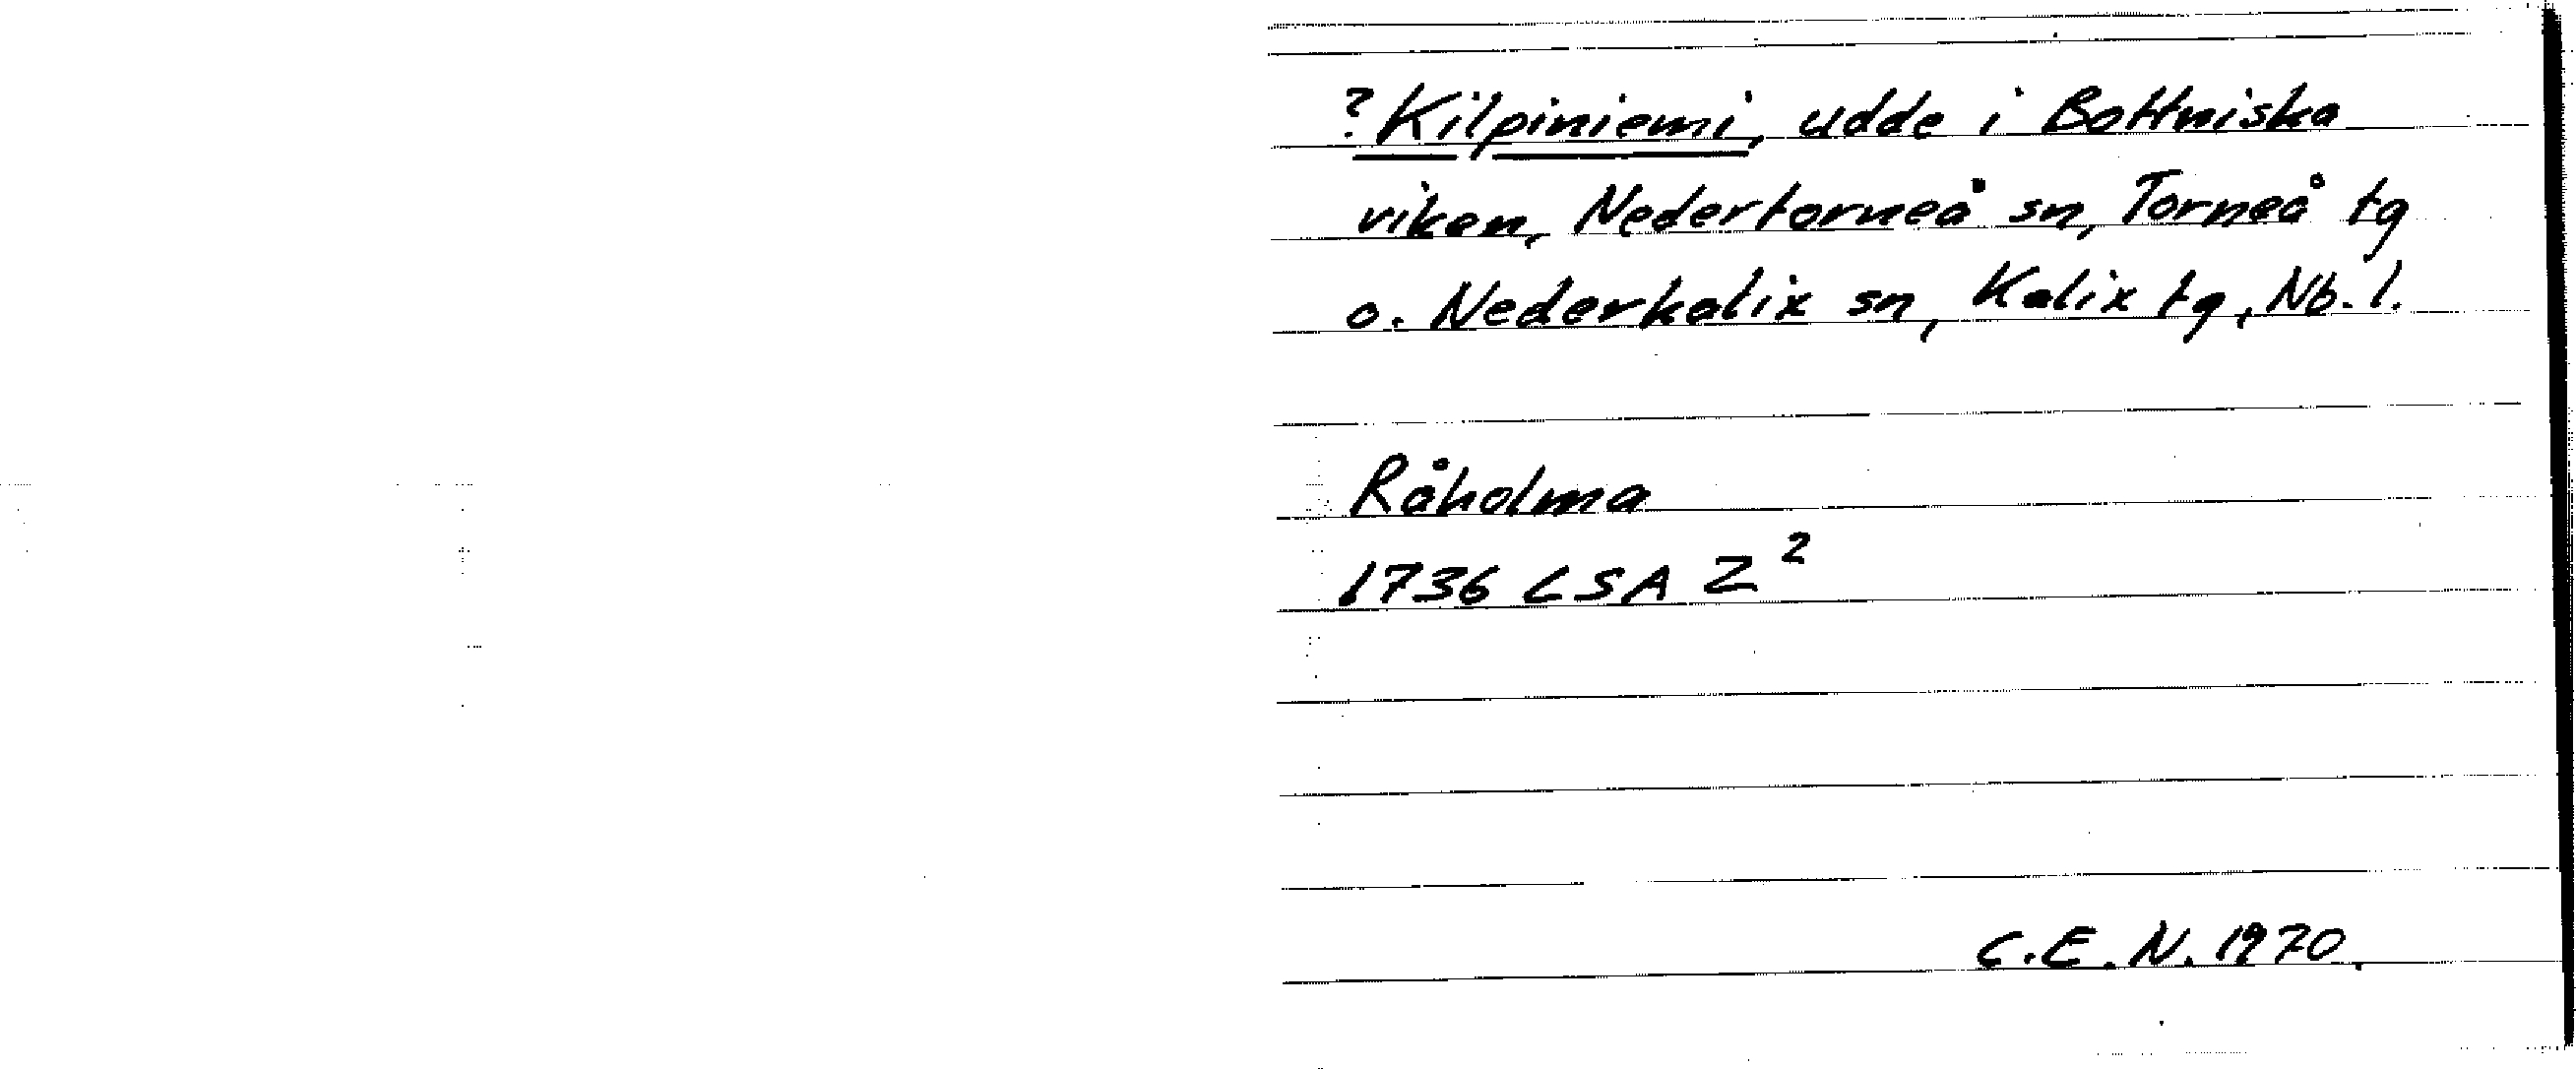 ?Kilpiniemi, udde i Bottniska
viken, Nedertorneå sn, Torneå tg
o. Nederkalix sn, Kalix tg, Nb. l.
Råholma
1736 LSA Z²
C.E.N. 1970.